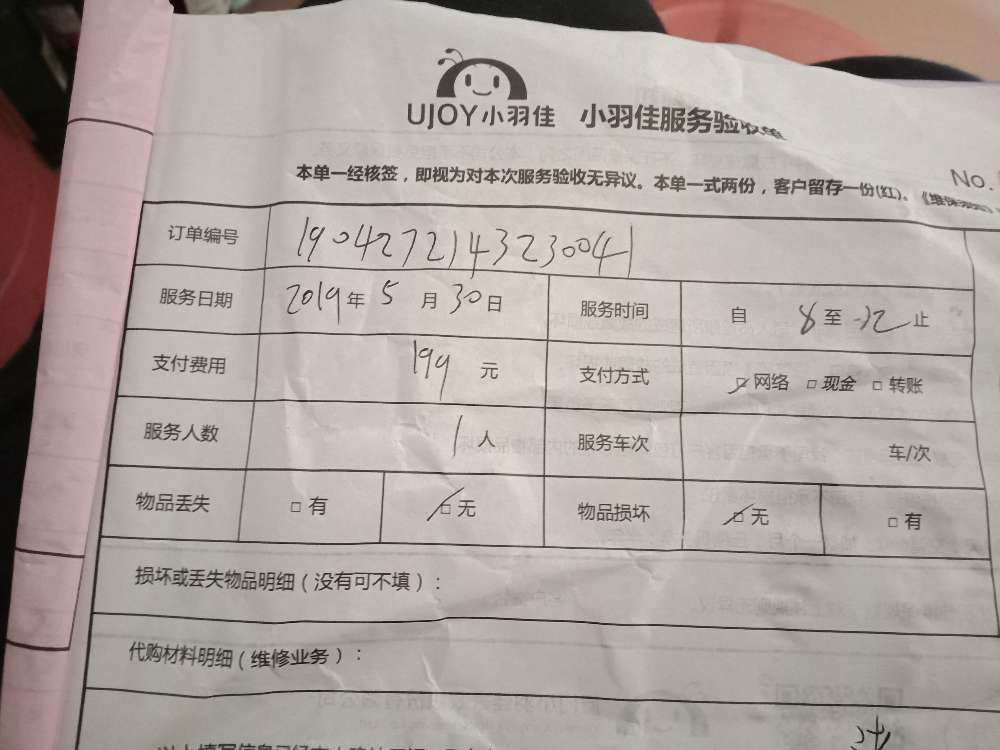 UJOY小羽佳 小羽佳服务验收单
No.
本单一经核签，即视为对本次服务验收无异议。本单一式两份，客户留存一份(红)。
订单编号 1904272143230041
服务日期 2019年 5 月 30日 服务时间 自 8 至 12 止
支付费用 199 元 支付方式 □ 网络 □ 现金 □ 转账
服务人数 1人 服务车次 车/次
物品丢失 □ 有 □ 无 物品损坏 □ 无 □ 有
损坏或丢失物品明细（没有可不填）:
代购材料明细（维修业务）: